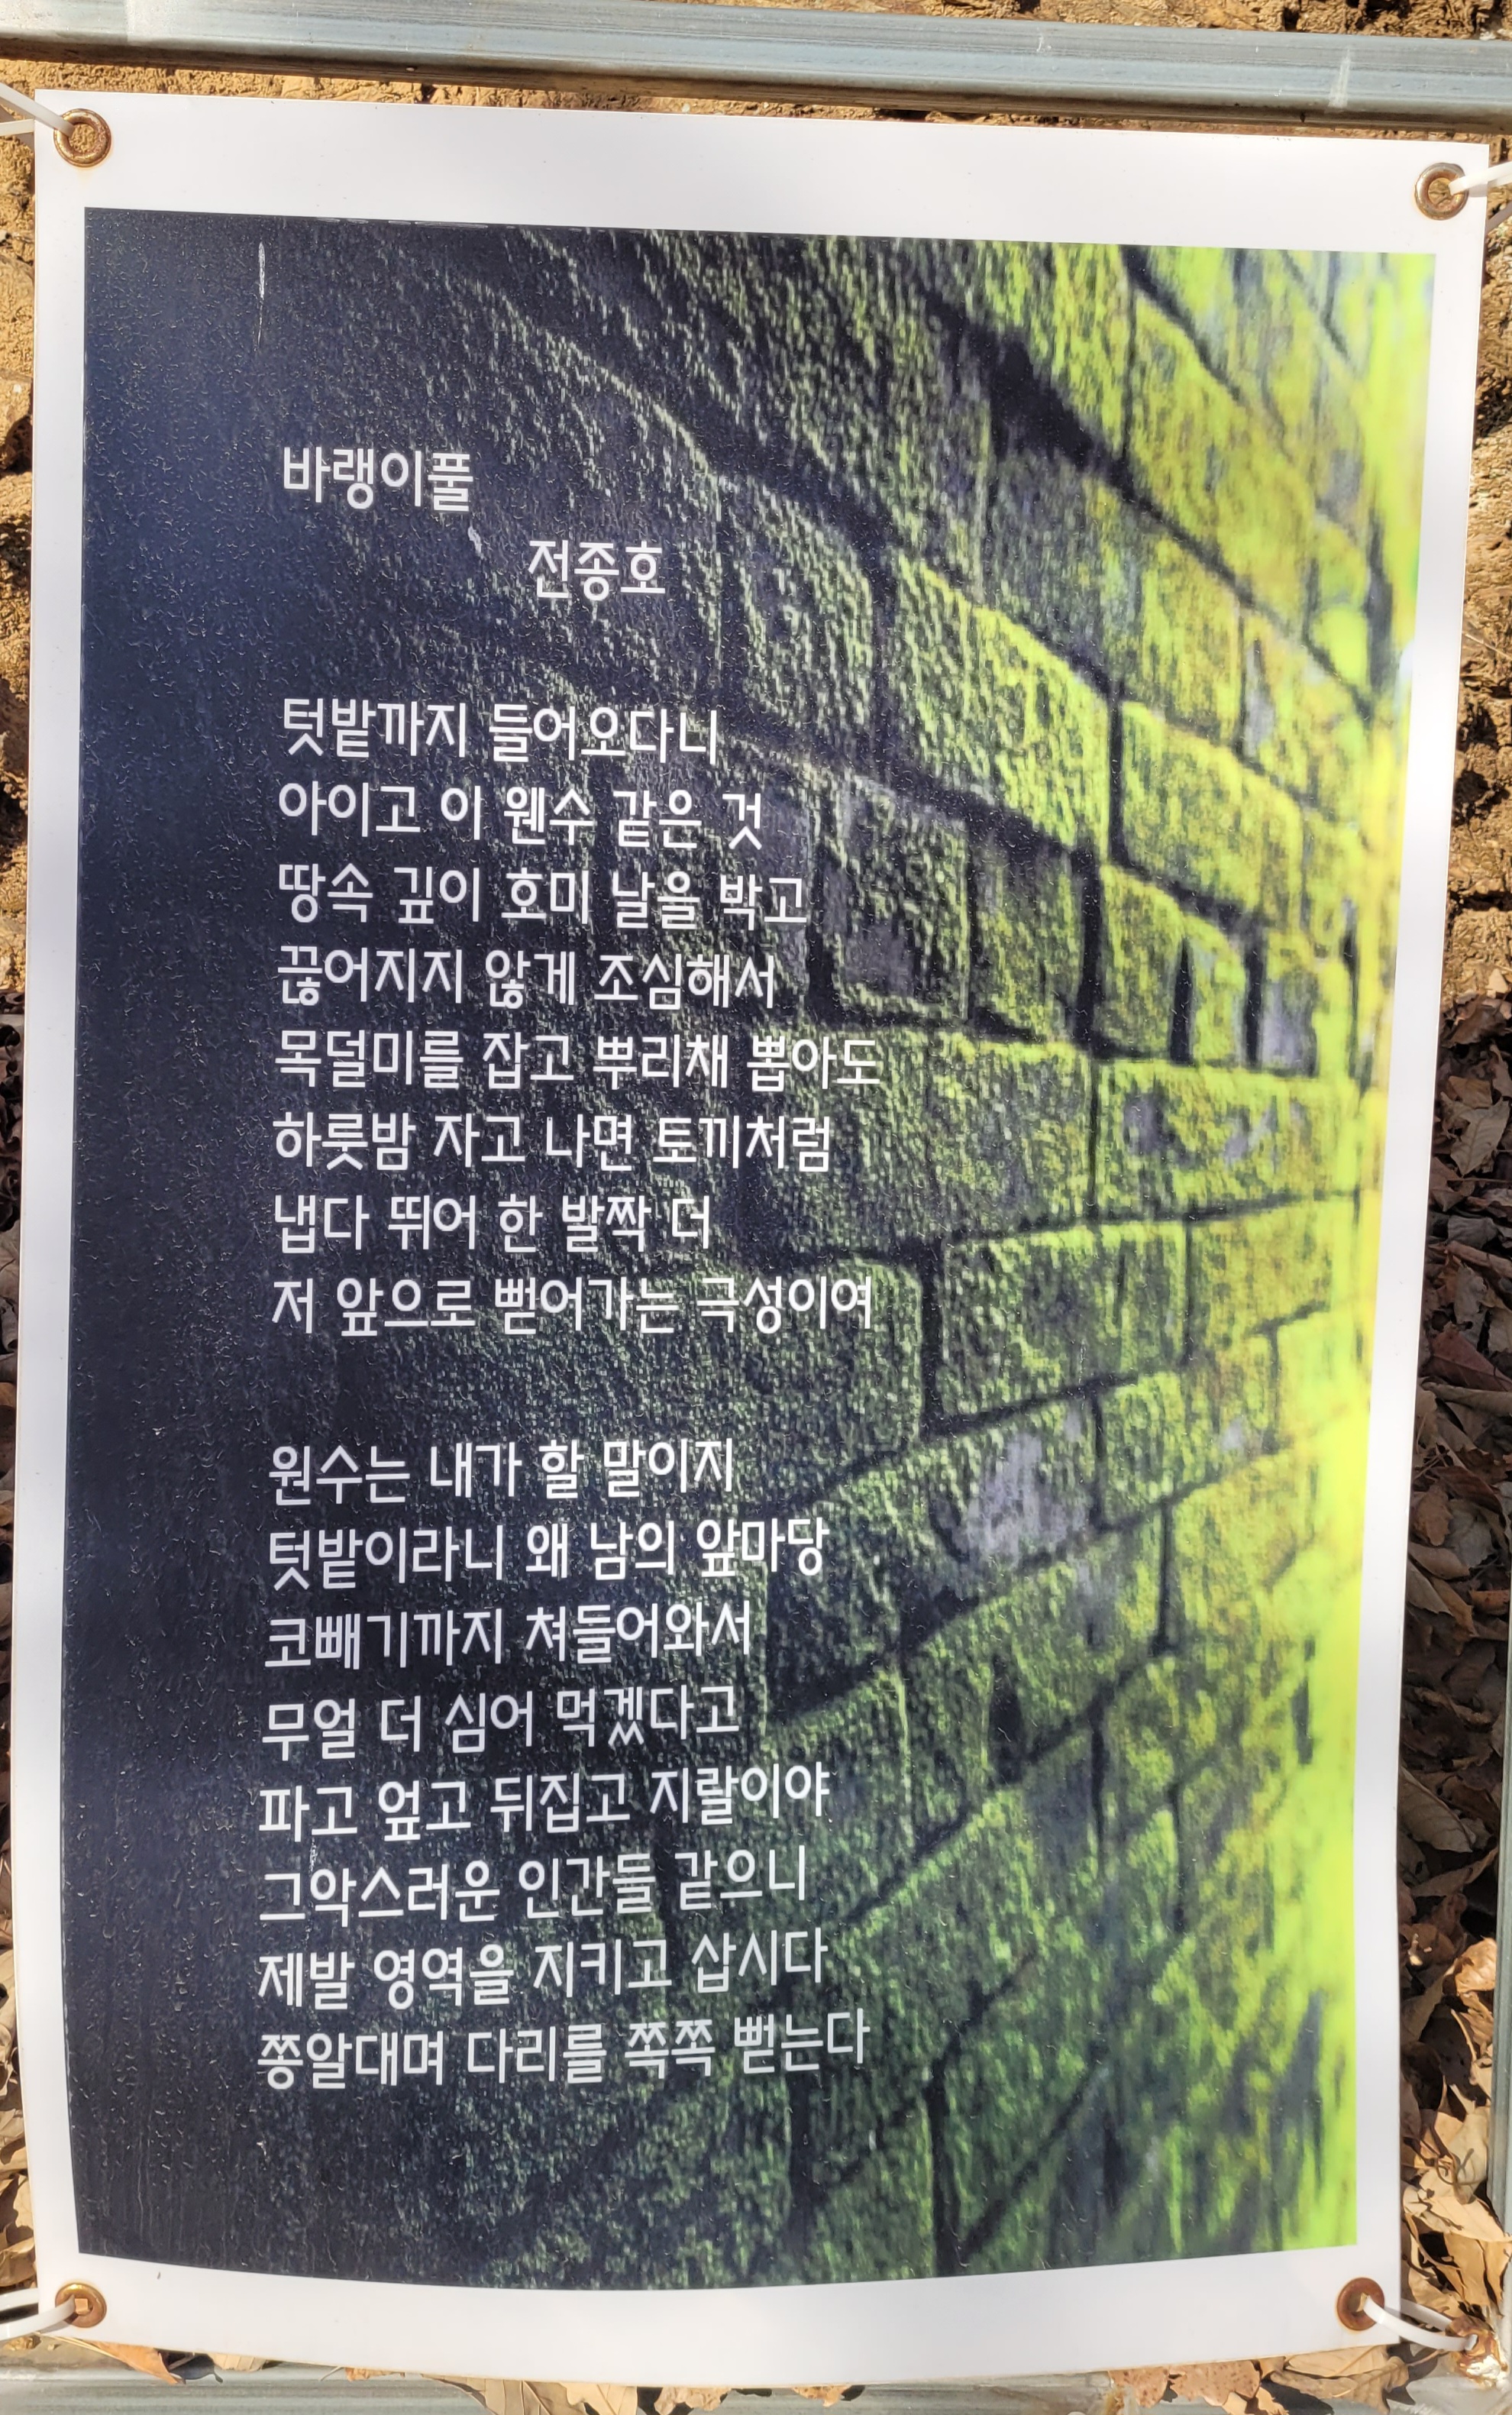 바랭이풀
전종호
텃밭까지 들어오다니
아이고 이 웬수 같은 것
땅속 깊이 호미 날을 박고
끊어지지 않게 조심해서
목덜미를 잡고 뿌리채 뽑아도
하룻밤 자고 나면 토끼처럼
냅다 뛰어 한 발짝 더
저 앞으로 뻗어가는 극성이여
원수는 내가 할 말이지
텃밭이라니 왜 남의 앞마당
코빼기까지 쳐들어와서
무얼 더 심어 먹겠다고
파고 엎고 뒤집고 지랄이야
그악스러운 인간들 같으니
제발 영역을 지키고 삽시다
쫑알대며 다리를 쪽쪽 뻗는다